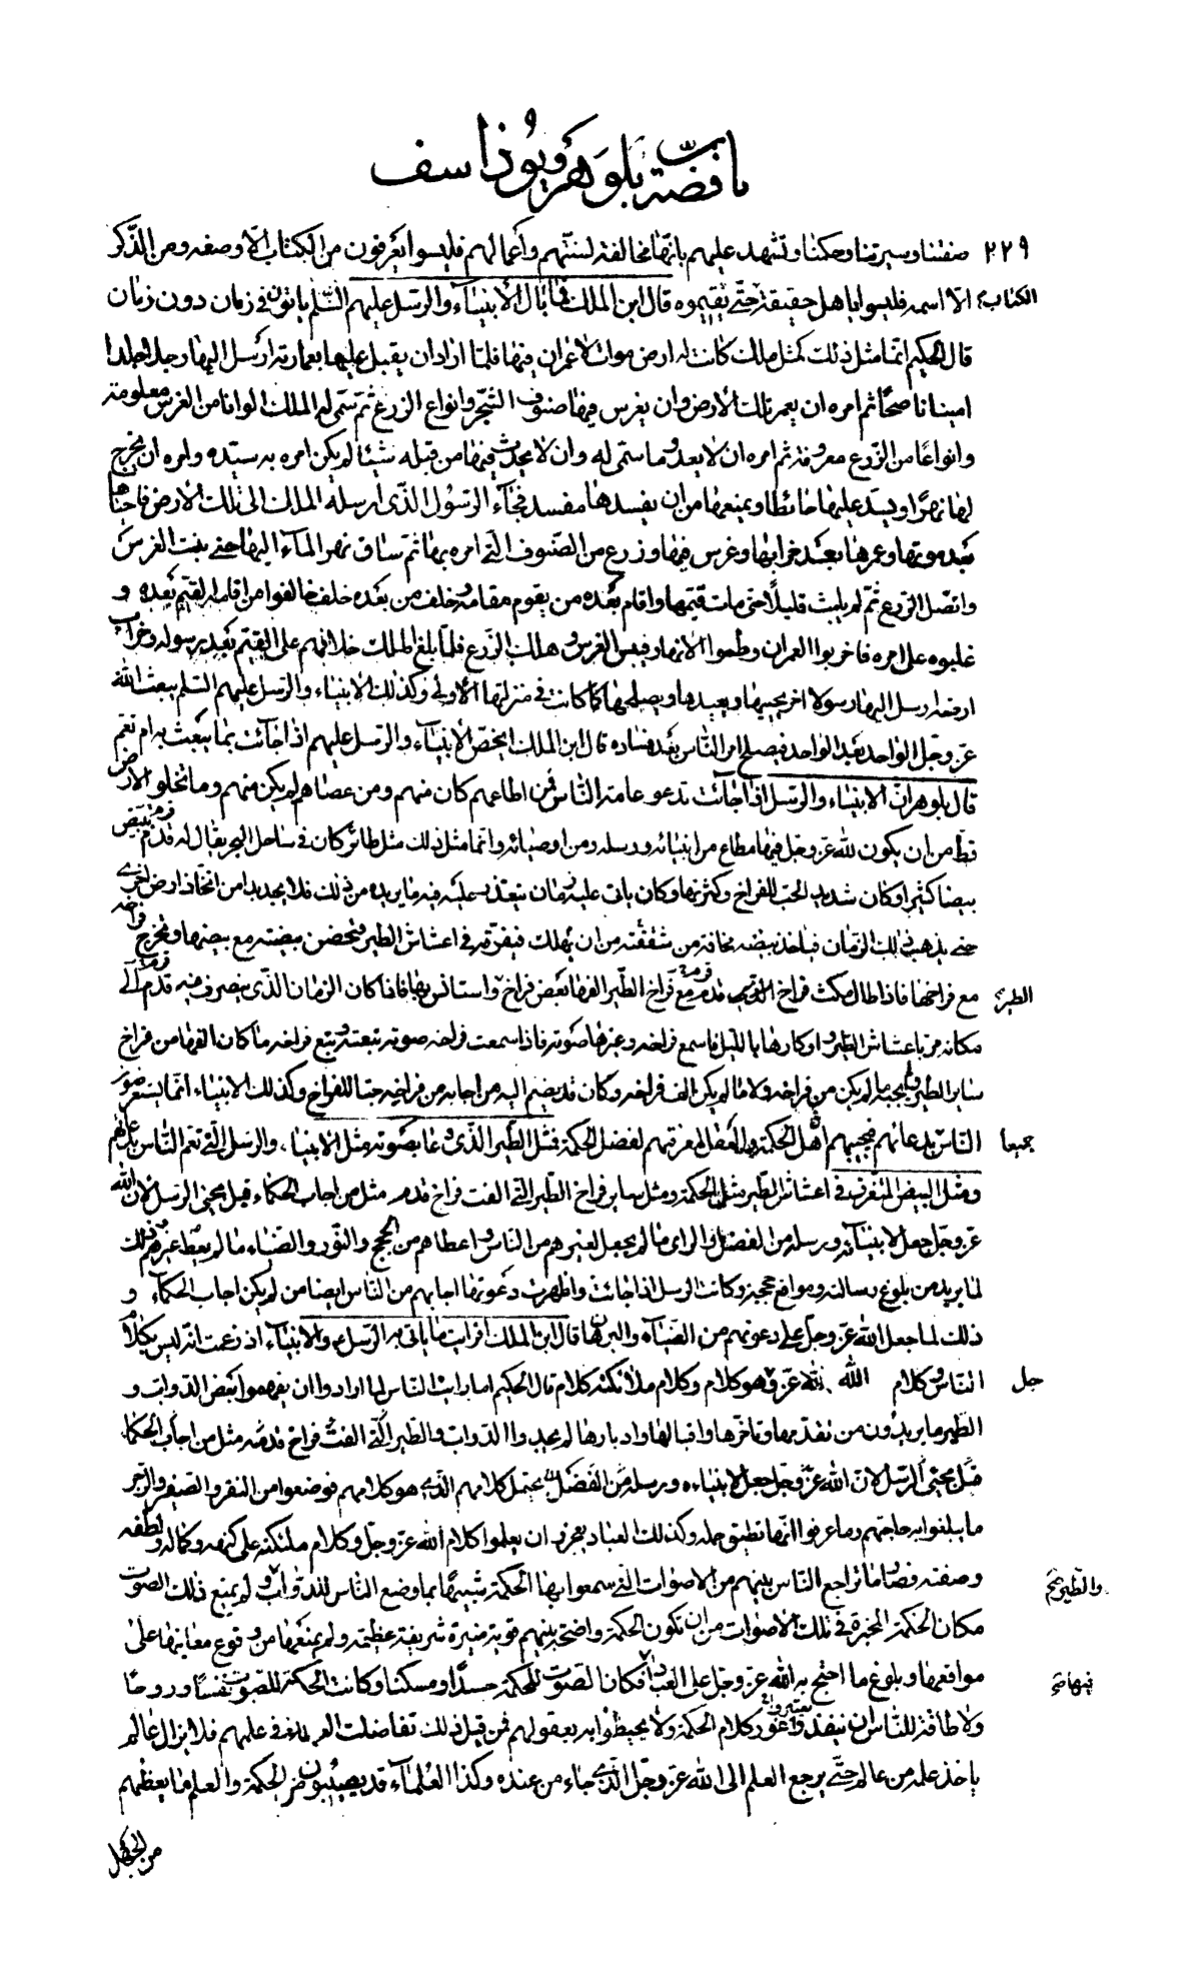 باب قصة بلوهر ويوذاسف
٢٢٩ صفتنا وسيرتنا وحكمنا وتشهد عليهم بانها مخالفة لسنتهم وأعمالهم فليسوا يعرفون من الكتاب الّا وصفه ومن الذكر
الكتاب الّا اسمه فليسوا باهل حقيقة حتّى يقيموه قال ابن الملك فما بال الأنبياء والرسل عليهم السّلم ياتون في زمان دون زمان
قال الحكيم انّما مثل ذلك كمثل ملك كانت له ارض موات لا عمران فيها فلمّا اراد ان يقبل عليها بعمارته ارسل اليها رجلا جلدا
امينا ناصحًا ثم امره ان يعمر تلك الأرض وان يغرس فيها صنوف الشجر وانواع الزرع ثمّ سمّى له الملك الوانا من الغرس معلومة
وانواعًا من الزرع معروفة ثم امره ان لا يعدو ما سمّى له وان لا يحدث فيها من قبله شيئا لم يكن امره به سيّده وامره ان يخرج
لها نهرًا ويسدّ عليها حائطا ويمنعها من ان يفسدها مفسد فجاء الرّسول الّذى ارسله الملك الى تلك الأرض فاحياها
بعد موتها وعمرها بعد خرابها وغرس فيها وزرع من الصّنوف الّتى امره بها ثمّ ساق نهر الماء اليها حتى نبت الغرس
واتصل الزرع ثمّ لم يلبث قليلًا حتى مات قيّمها واقام بعده من يقوم مقامه وخلف من بعده خلف خالفوا من اقامه القيّم بعده و
غلبوه على امره فاخربوا العمران وطموا الانهار فيبس الغرس وهلك الزرع فلمّا بلغ الملك خلافهم على القيّم بعد رسوله وخراب
ارضه ارسل اليها رسولا اخر يحييها ويعيدها ويصلحها كما كانت في منزلتها الأولى وكذلك الانبياء والرسل عليهم السّلم يبعث الله
عزّ وجلّ الواحد بعد الواحد فيصلح امر النّاس بعد فساده قال ابن الملك ايخصّ الأنبياء والرسل عليهم اذا جائت بما يبعث به ام تعم
قال بلوهر انّ الانبياء والرسل اذا جائت تدعو عامة النّاس فمن اطاعهم كان منهم ومن عصاهم لم يكن منهم وما تخلو الارض
قطّ من ان يكون لله عزّ وجلّ فيها مطاع من انبيائه ورسله ومن اوصيائه وانّما مثل ذلك مثل طائر كان في ساحل البحر يقال له قدم يبيض
بيضا كثيرا وكان شديد الحبّ للفراخ وكثرتها وكان ياتى عليه زمان يتعذّر عليه فيه ما يريده من ذلك فلا يجد بدا من اتخاذ ارض اخرى
حتى يذهب ذلك الزمان فياخذ بيضه مخافة من شفقته من ان يهلك فيفرّقه في اعشاش الطير فتحضن بيضته مع بيضها وتخرج فراخه
الطير مع فراخها فاذا طال مكث فراخ قدم مع فراخ الطّير الفها بعض فراخ واستانس بها فاذا كان الزمان الّذى ينصرف فيه قدم الى
مكانه مرّ باعشاش الطير واوكارها بالليل فاسمع فراخه وغيرها صوته فاذا سمعت فراخه صوته تبعته وتبع فراخه ما كان الفها من فراخ
ساير الطير ولم يجبه ما لم يكن من فراخه ولا ما لم يكن الف فراخه وكان قدم يضم اليه من اجابه من فراخه حبّا للفراخ وكذلك الانبياء انّما يستعرضون
جميعا النّاس بدعائهم فيجيبهم أهل الحكمة والعقل لمعرفتهم لفضل الحكمة فمثل الطّير الّذى دعا بصوته مثل الانبياء والرسل الّتى تعم النّاس بدعائهم
ومثل البيض المتفرق في اعشاش الطير مثل الحكمة ومثل ساير فراخ الطير الّتى الفت فراخ قدم مثل من اجاب الحكماء قبل مجئ الرسل لان الله
عزّ وجلّ جعل لانبيائه ورسله من الفضل والراى ما لم يجعل لغيرهم من الناس واعطاهم من الحجج والنّور والضياء ما لم يعط غيرهم وذلك
لما يريد من بلوغ رسالته ومواقع حججه وكانت الرسل اذا جائت واظهرت دعوتها اجابهم من النّاس ايضا من لم يكن اجاب الحكماء و
ذلك لما جعل الله عزّ وجلّ على دعوتهم من الضياء والبرهان قال ابن الملك افرايت ما ياتى به الرسل والانبياء اذ زعمت انّه ليس بكلام
جل النّاس وكلام الله عزّ وهو كلام وكلام ملائكته كلام قال الحكيم اما رايت النّاس لما ارادوا ان يفهموا بعض الدّواب و
الطير ما يريدون من تقدّمها وتاخّرها واقبالها وادبارها لم يجدوا الدّواب والطير الّتى الفت فراخ قدم مثل من اجاب الحكماء
قبل مجئ الرسل لانّ الله عزّ وجلّ جعل لانبياءه ورسله من الفضل يحتمل كلامهم الّذى هو كلامهم فوضعوا من النقر والصفير والزجر
ما يبلغوا به حاجتهم وما عرفوا انّها تطيق حمله وكذلك العباد يعجزوا ان يعلموا كلام الله عزّ وجلّ وكلام ملئكته على كنهه وكماله ولطفه
والطير صح وصفته فصار ما تراجع النّاس بينهم من الاصوات الّتى سمعوا بها الحكمة شبيهًا بما وضع النّاس للدّواب ولم يمنع ذلك الصوت
مكان الحكمة المخبرة في تلك الاصوات من ان تكون الحكمة واضحة بينهم قوية منيرة شريفة عظيمة ولم يمنعها من وقوع معانيها على
مواقعها وبلوغ ما احتجّ به الله عزّ وجلّ على العباد فيها فكان الصوت للحكمة جسدًا ومسكنا وكانت الحكمة للصوت نفسًا وروحًا
ولا طاقة للنّاس ان ينفذوا غور كلام الحكمة ولا يحيطوا به بعقولهم فمن قبل ذلك تفاضلت العلماء في علمهم فلا يزال عالم
ياخذ علمه من عالم حتّى يرجع العلم الى الله عزّ وجلّ الّذى جاء من عنده وكذا العلماء قد يصيبون من الحكمة والعلم ما يعظهم
من الجهل